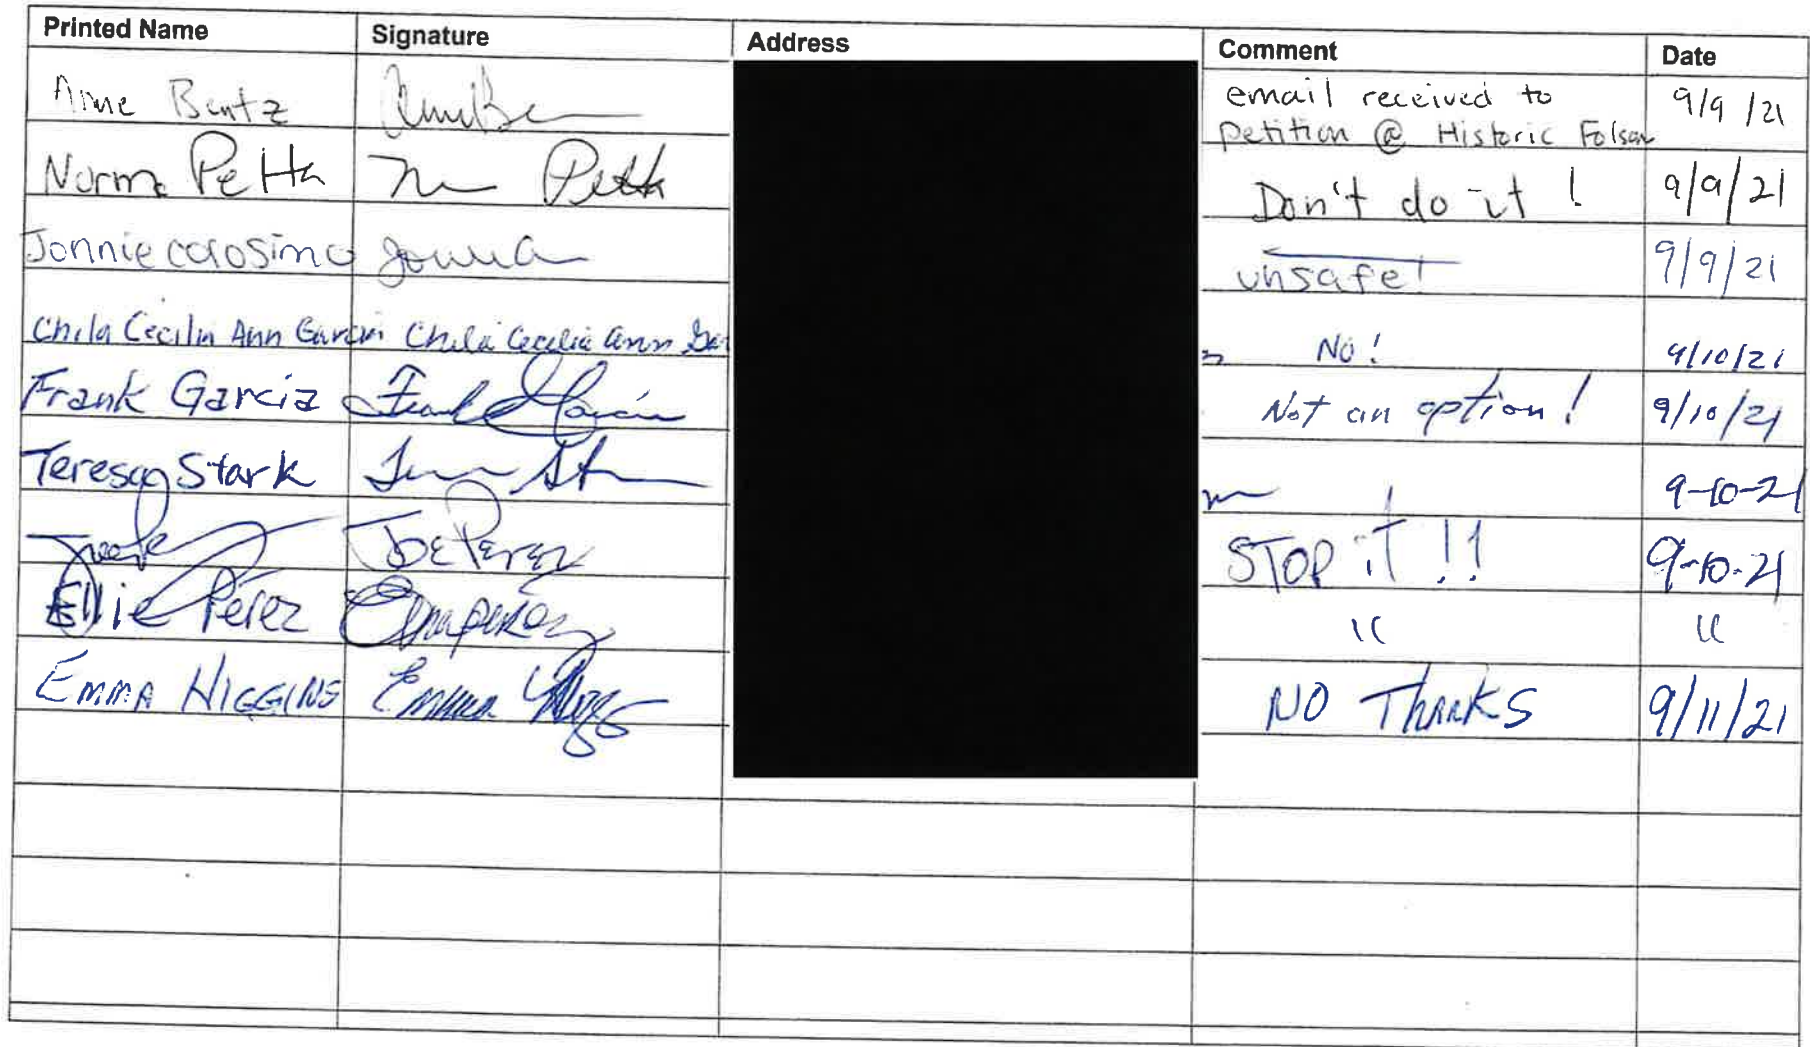 Printed Name Signature Address Comment Date
Anne Bentz email received to petition @ Historic Folsom 9/9/21
Norma Petta Petta Don't do it! 9/9/21
Jonnie colosimo unsafe! 9/9/21
Chila Cecilia Ann Garcia Chila Cecilia Ann Gar No! 9/10/21
Frank Garcia Frank Garcia Not an option! 9/10/21
Teresa Stark 9-10-21
Joe Perez STOP it!! 9-10-21
Ellie Perez " "
EMMA HIGGINS Emma NO THANKS 9/11/21